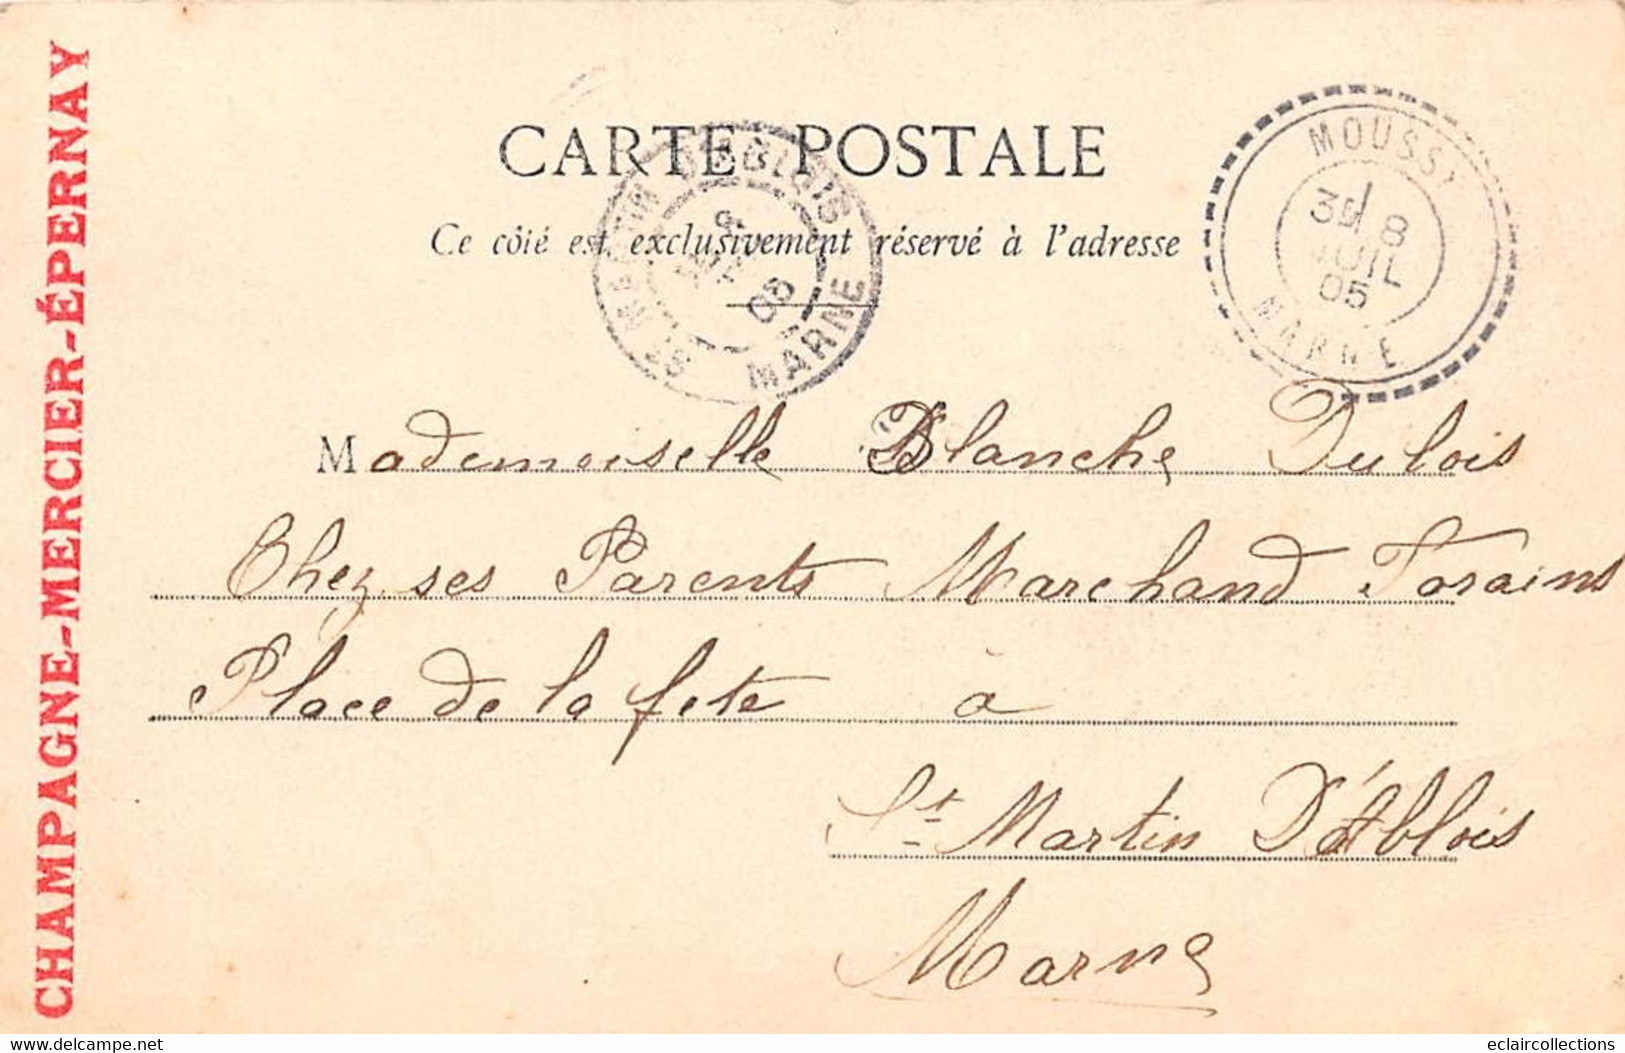 CHAMPAGNE-MERCIER-ÉPERNAY
CARTE POSTALE
Ce côté est exclusivement réservé à l'adresse
MOUSSY
3E 8
JUIL
05
MARNE
ST MARTIN D'ABLOIS
MARNE
Mademoiselle Blanche Dulois
Chez ses Parents Marchand Forains
Place de la fete à
St Martin D'Ablois
Marne
www.delcampe.net
eclaircollections